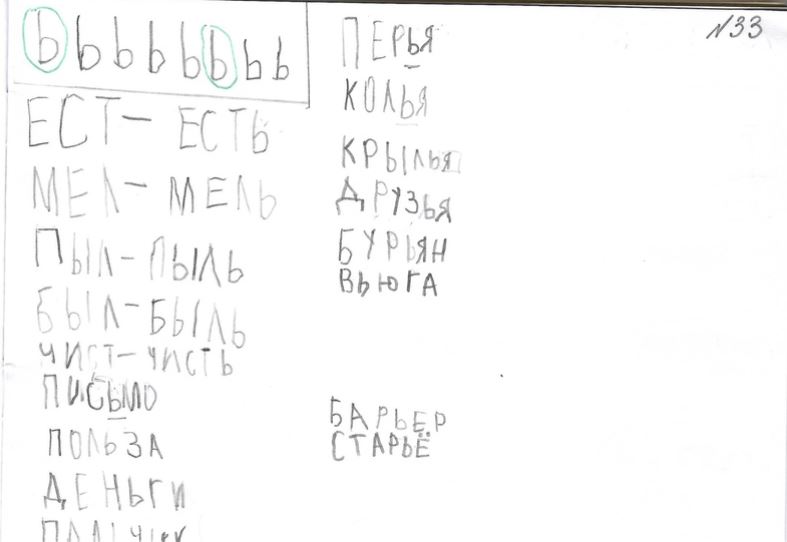 Ь Ь Ь Ь Ь Ь Ь Ь
ЕСТ – ЕСТЬ
МЕЛ – МЕЛЬ
ПЫЛ – ПЫЛЬ
БЫЛ – БЫЛЬ
ЧИСТ – ЧИСТЬ
ПИСЬМО
ПОЛЬЗА
ДЕНЬГИ
№33
ПЕРЬЯ
КОЛЬЯ
КРЫЛЬЯ
ДРУЗЬЯ
БУРЬЯН
ВЬЮГА
БАРЬЕР
СТАРЬЁ